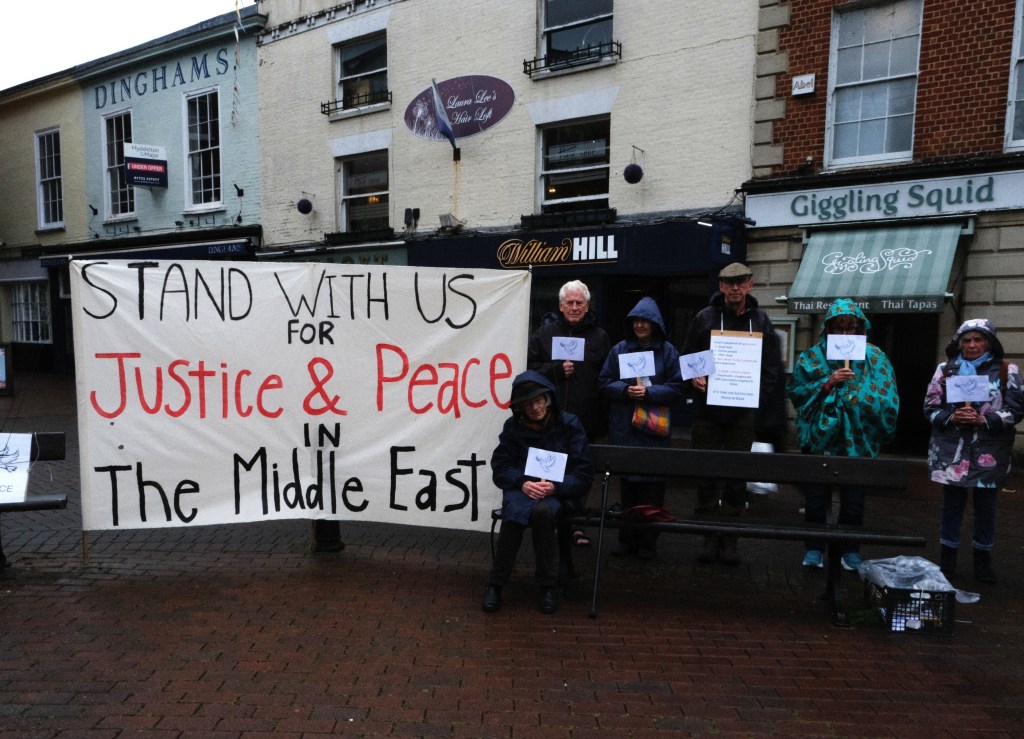 DINGHAMS
Myddelton
& Major
UNDER OFFER
Laura Lee's
Hair Loft
Abel
William HILL
DINGHAMS
Giggling Squid
Giggling Squid
Thai Restaurant Thai Tapas
STAND WITH US
FOR
Justice & Peace
IN
The Middle East
CE